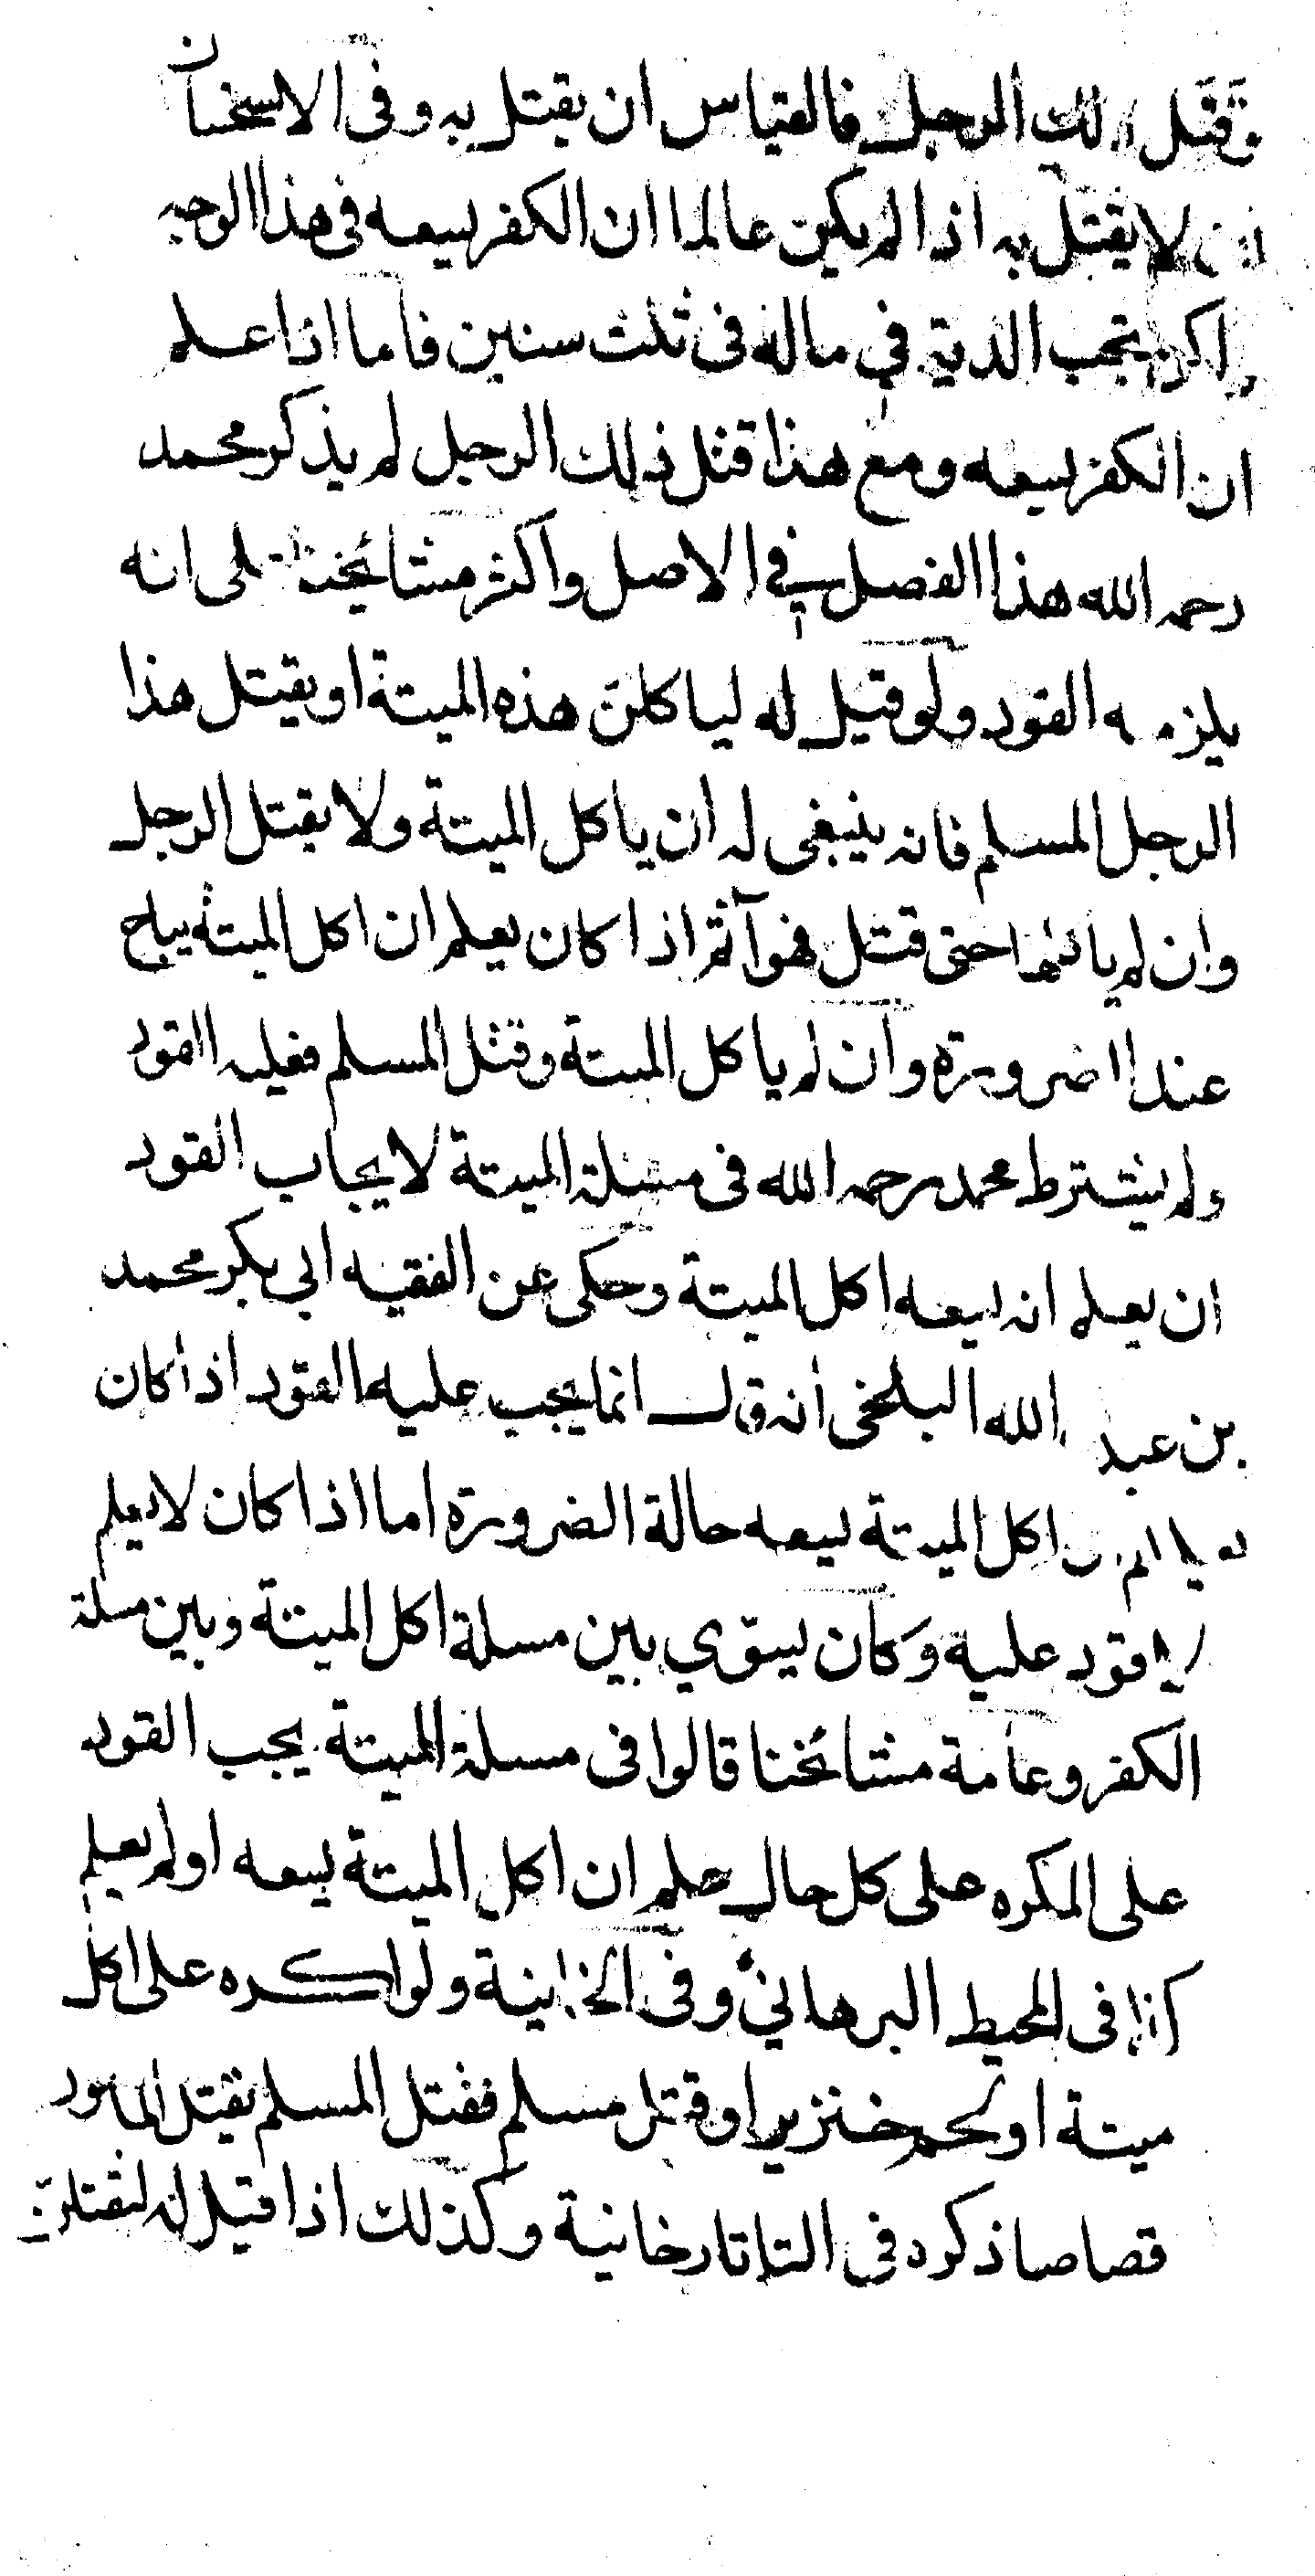 وقتل ذلك الرجل فالقياس ان يقتل به وفى الاستحسان
لا يقتل به اذا لم يكن عالما ان الكفر يسعه فى هذا الوجه
ولكن تجب الدية في ماله فى ثلث سنين فاما اذا علم
ان الكفر يسعه ومع هذا قتل ذلك الرجل لم يذكر محمد
رحمه الله هذا الفصل في الاصل واكثر مشائخنا على انه
يلزمه القود ولو قيل له لياكلن هذه الميتة او يقتل هذا
الرجل المسلم فانه ينبغى له ان ياكل الميتة ولا يقتل الرجل
وان لم ياكلها حتى قتل فهو آثم اذا كان يعلم ان اكل الميتة يباح
عند الضرورة وان لم ياكل الميتة وقتل المسلم فعليه القود
ولم يشترط محمد رحمه الله فى مسئلة الميتة لايجاب القود
ان يعلم انه يسعه اكل الميتة وحكى عن الفقيه ابي بكر محمد
بن عبد الله البلخى انه قال انما يجب عليه القود اذا كان
يعلم ان اكل الميتة يسعه حالة الضرورة اما اذا كان لا يعلم
لا قود عليه وكان يسوّي بين مسلة اكل الميتة وبين مسلة
الكفر وعامة مشائخنا قالوا فى مسلة الميتة يجب القود
على المكره على كل حال علم ان اكل الميتة يسعه او لم يعلم
كذا فى المحيط البرهاني وفى الخانية ولو اكره على اكل
ميتة او لحم خنزير او قتل مسلم فقتل المسلم يقتل المامور
قصاصا ذكره فى التاتارخانية وكذلك اذا قيل له لتقتلن